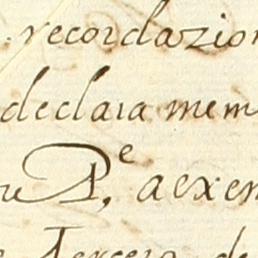 recordazion
declara mem
P.^e, aexem
Tercera de